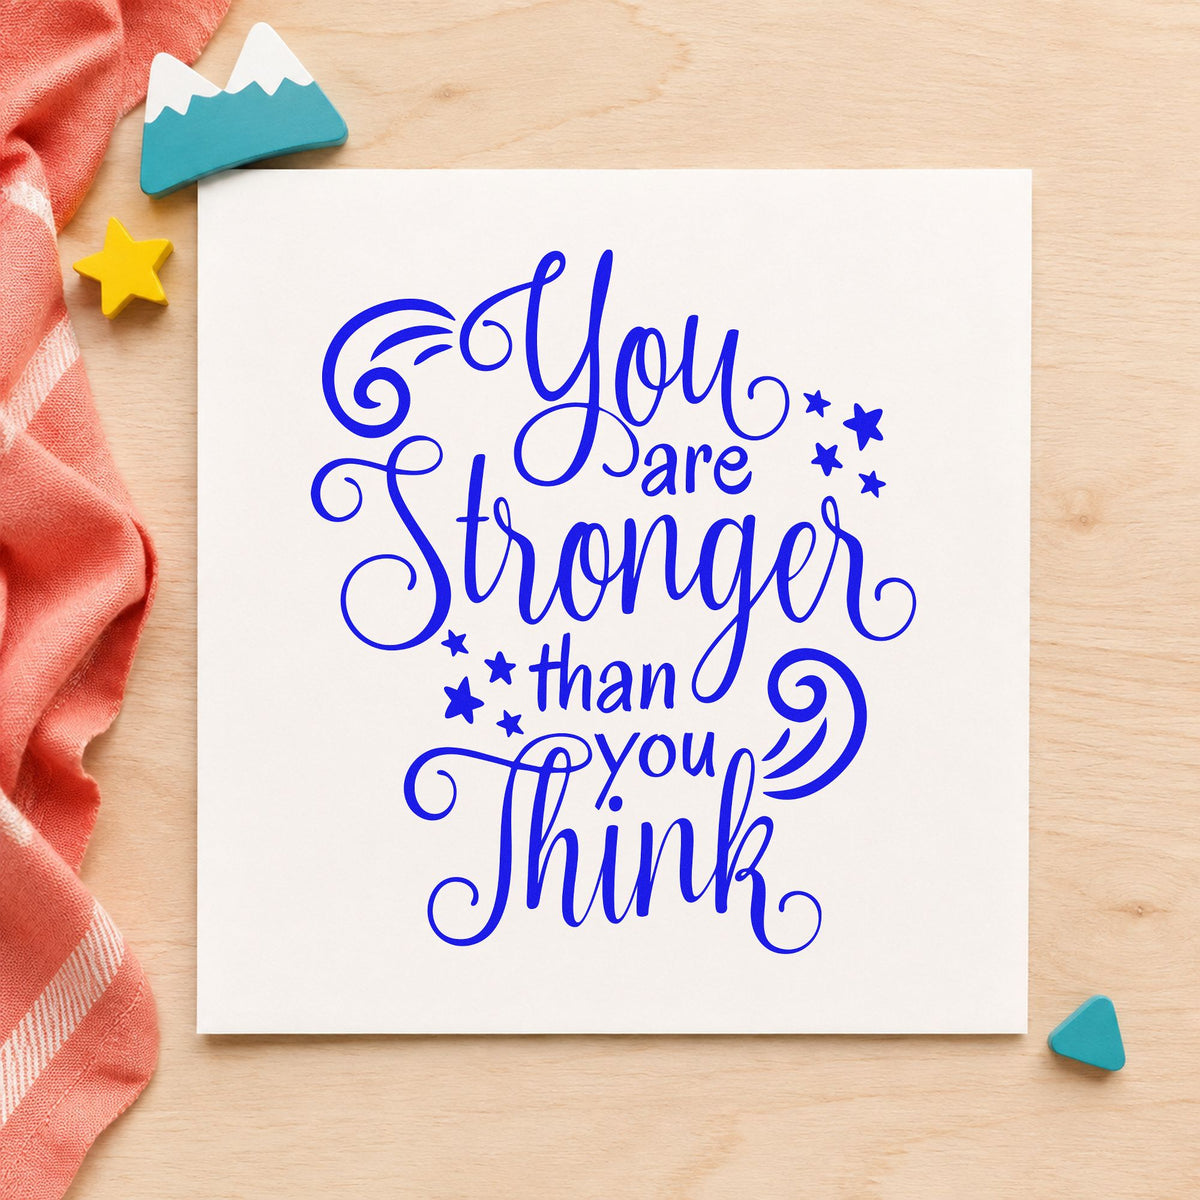 You
are
Stronger
than
you
Think